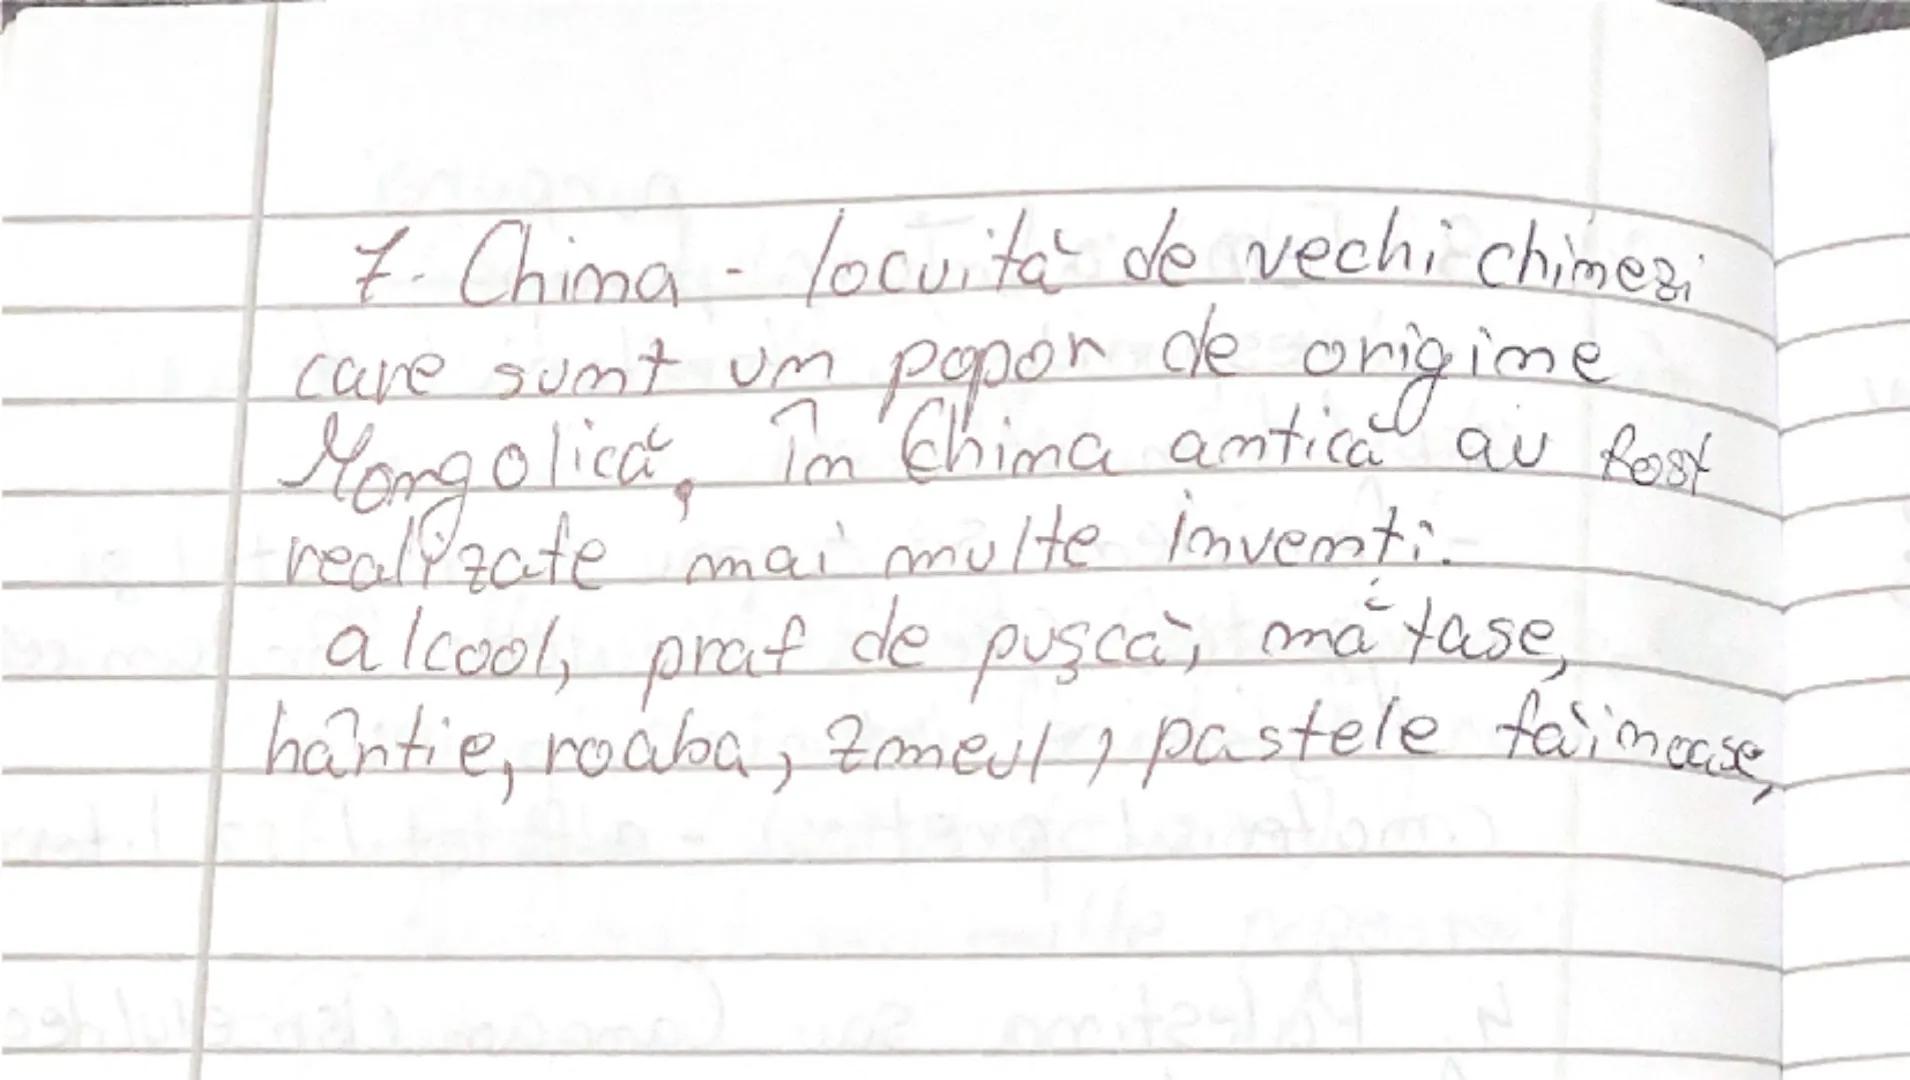 7. China - locuită de vechi chinezi
care sunt un popor de origine
Mongolică, în China antică au fost
realizate mai multe inventi.
alcool, praf de pușcă, mătase,
hârtie, roaba, zmeul, pastele făinoase,